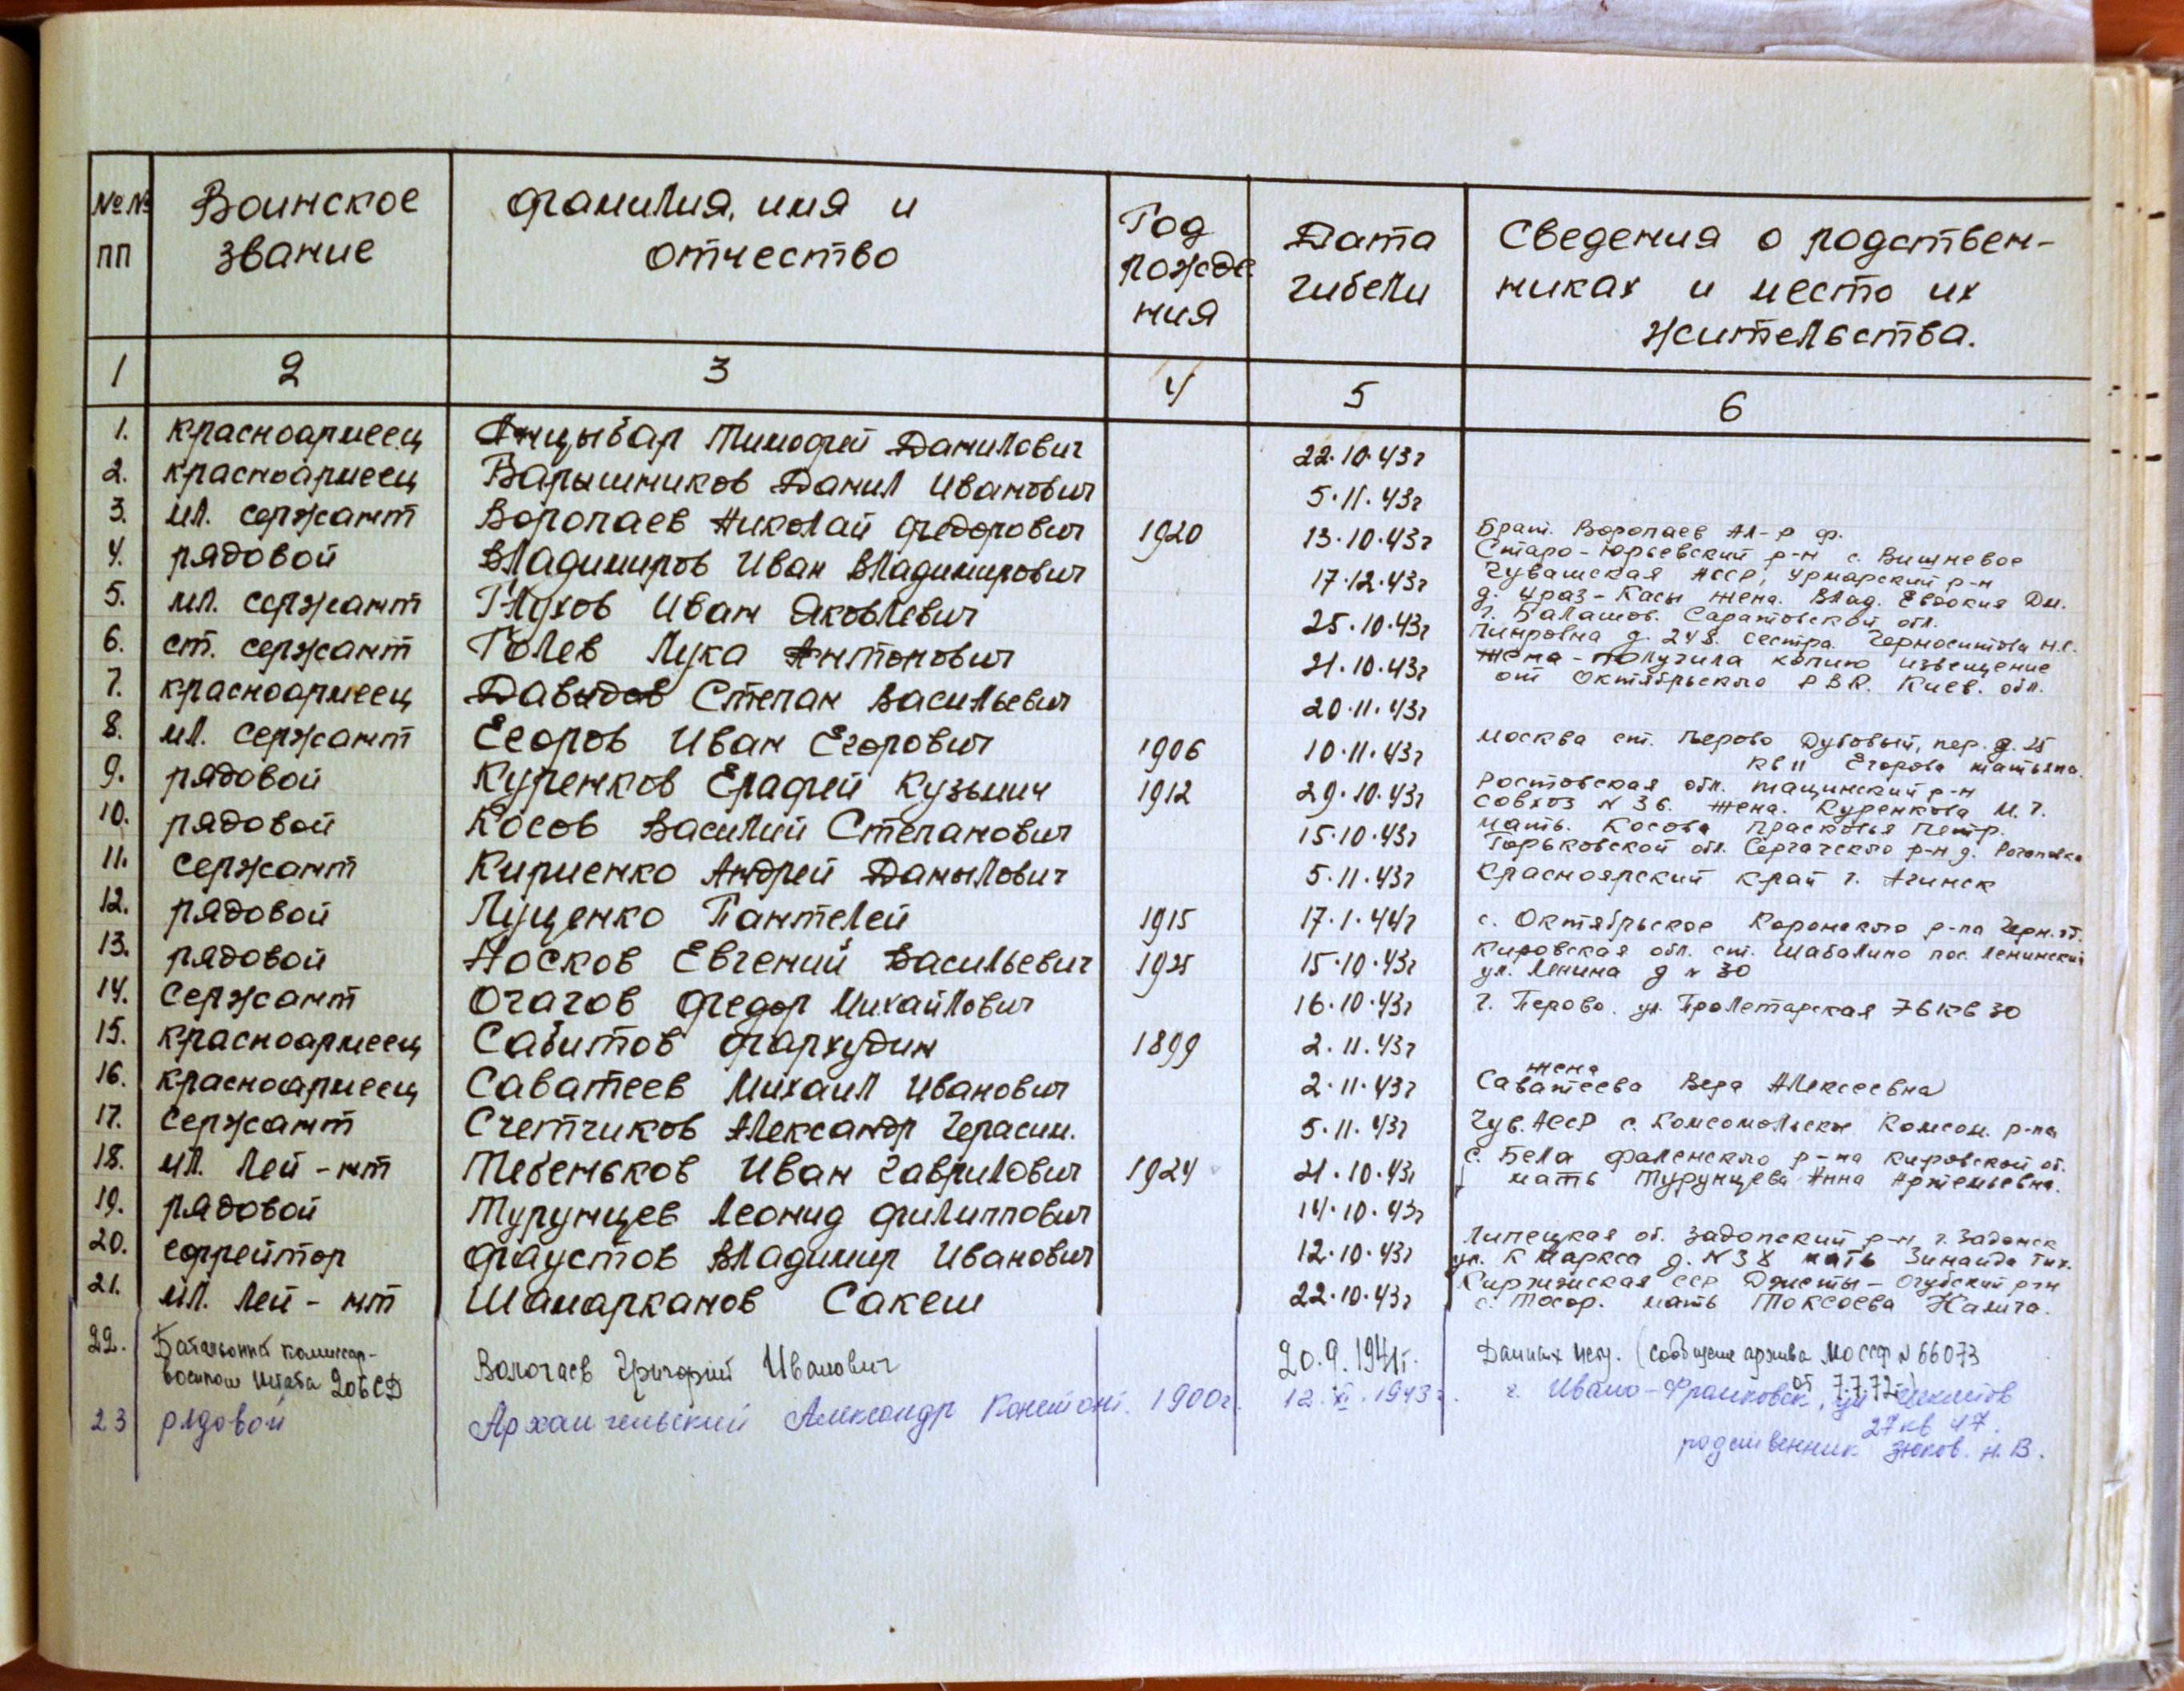 №№ Воинское фамилия, имя и Год Дата Сведения о родствен-
пп звание отчество рожде гибели никах и место их
ния жительства.
1 2 3 4 5 6
1. красноармеец Анцыбар Тимофей Данилович 22.10.43г
2. красноармеец Барышников Данил Иванович 5.11.43г
3. мл. сержант Воропаев Николай Федорович 1920 13.10.43г Брат. Воропаев Ал-р Ф.
Старо-Юрьевский р-н с. Вишневое
4. рядовой Владимиров Иван Владимирович 17.12.43г Чувашская АССР, Урмарский р-н
д. Чраз-Касы жена. Влад. Евдокия Дм.
5. мл. сержант Глухов Иван Яковлевич 25.10.43г г. Балашов. Саратовской обл.
д. 248. сестра. Н.С.
6. ст. сержант Голев Лука Антонович 21.10.43г жена - получила копию извещение
от Октябрьского РВК. Киев. обл.
7. красноармеец Давыдов Степан Васильевич 20.11.43г
8. мл. сержант Егоров Иван Егорович 1906 10.11.43г Москва ст. Перово Дубовый, пер. д. 25
кв 11 Егорова Татьяна.
9. рядовой Куренков Ерафей Кузьмич 1912 29.10.43г Ростовская обл. Тацинский р-н
совхоз № 36. жена. Куренкова М. Г.
10. рядовой Косов Василий Степанович 15.10.43г мать. Косова Прасковья Петр.
Горьковской обл. Сергачского р-н д.
11. сержант Кириенко Андрей Данылович 5.11.43г Красноярский край г. Ачинск
12. рядовой Луценко Пантелей 1915 17.1.44г с. Октябрьское р-на
13. рядовой Носков Евгений Васильевич 1925 15.10.43г Кировская обл. ст. Шабалино пос. Ленинский
ул. Ленина д № 30
14. сержант Огагов Федор Михайлович 16.10.43г г. Перово. ул. Пролетарская 76 кв 30
15. красноармеец Сабитов Фархудин 1899 2.11.43г
16. красноармеец Саватеев Михаил Иванович 2.11.43г жена
Саватеева Вера Алексеевна
17. сержант Счетчиков Александр Герасим. 5.11.43г Чув. АССР с. Комсомольское Комсом. р-на
18. мл. лей-нт Тебеньков Иван Гаврилович 1924 21.10.43г с. Бела Фаленского р-на Кировской об.
19. рядовой Турунцев Леонид Филиппович 14.10.43г мать Турунцева Анна Артемьевна.
20. ефрейтор Фаустов Владимир Иванович 12.10.43г Липецкая об. Задонский р-н, г. Задонск
ул. К Маркса д. № 38 мать Зинаида Тих.
21. мл. лей-нт Шамарканов Сакеш 22.10.43г Киргизская ССР Джеты-Огузский р-н
с. Тосор. мать Токсоева Калича.
22. Батальонный комиссар- Вологаев Григорий Иванович 20.9.1941г. Данных нет. (сообщение архива МО СССР № 66073
штаба 206 СД от 7.7.72г.)
23 рядовой Архангельский Александр Констант. 1900г. 12.XI.1943г. г. Ивано-Франковск, ул
27 кв 47.
родственник Зюков. Н. В.